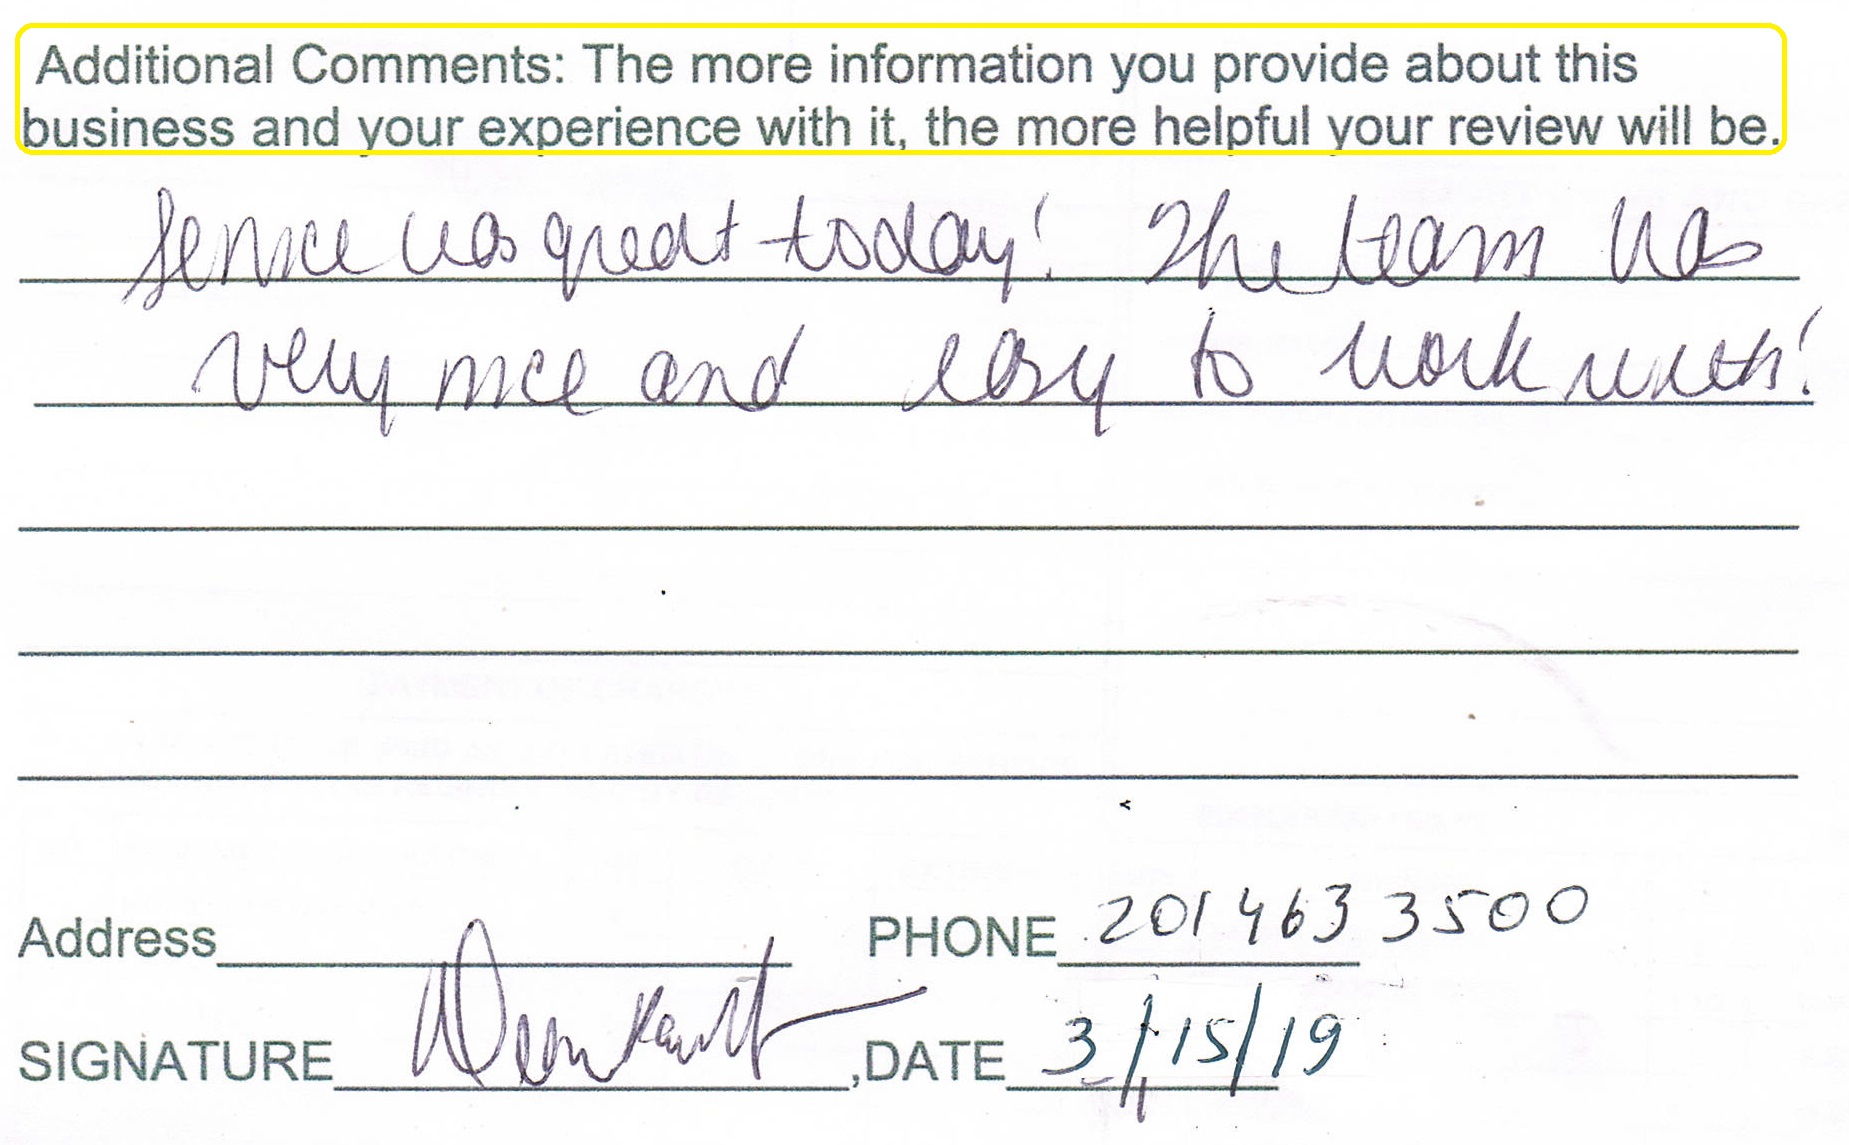 Additional Comments: The more information you provide about this
business and your experience with it, the more helpful your review will be.
Service was great today! The team was
very nice and easy to work with!
Address PHONE 201 463 3500
SIGNATURE ,DATE 3/15/19